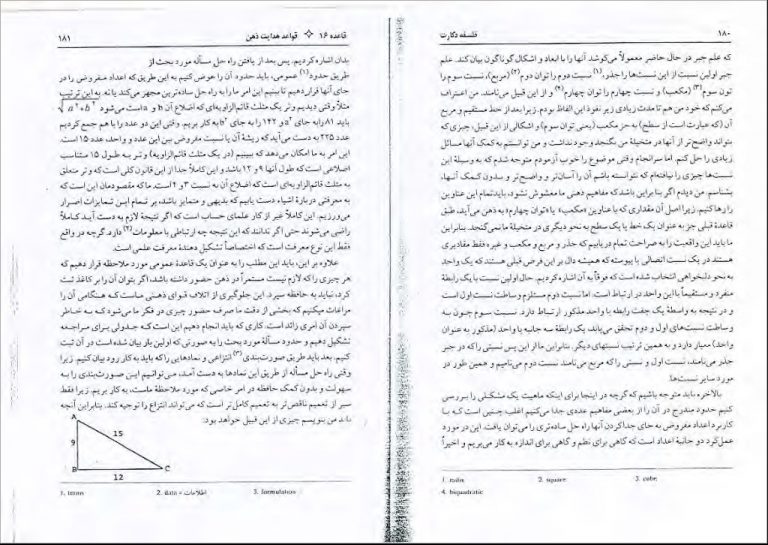 ۱۸۰ فلسفه دکارت
که علم جبر در حال حاضر معمولاً می‌کوشد آنها را با ابعاد و اشکال گوناگون بیان کند. علم
جبر اولین نسبت از این نسبت‌ها را جذر،(۱) نسبت دوم را توان دوم(۲) (مربع)، نسبت سوم را
توان سوم(۳) (مکعب) و نسبت چهارم را توان چهارم(۴) و از این قبیل می‌نامند. من اعتراف
می‌کنم که خود من هم تا مدت زیادی زیر نفوذ این الفاظ بودم. زیرا بعد از خط مستقیم و مربع
(که عبارت است از سطح) به جز مکعب (یعنی توان سوم) و اشکالی از این قبیل، چیزی که
بتواند واضح‌تر از آنها در متخیلهٔ من بگنجد وجود نداشت و من توانستم به کمک آنها مسائل
زیادی را حل کنم. اما سرانجام وقتی موضوع را خوب آزمودم متوجه شدم که به وسیلهٔ این
نسبت‌ها چیزی را نیافته‌ام که نتوانسته باشم آن را آسان‌تر و واضح‌تر و بدون کمک آنها،
بشناسم. من دیدم اگر بنا براین باشد که مفاهیم ذهنی ما مغشوش نشود، باید تمام این عناوین
را رها کنیم. زیرا اصل آن مقداری که با عناوین «مکعب» یا «توان چهارم» به ذهن می‌آید، طبق
قاعدهٔ قبلی جز به عنوان یک خط یا یک سطح به نحو دیگری در متخیلهٔ ما نمی‌گنجد. بنابراین
ما باید این واقعیت را به صراحت تمام دریابیم که جذر و مربع و مکعب و غیره فقط مقادیری
هستند در یک نسبت اتصالی یا پیوسته که همیشه دال بر این فرض قبلی هستند که یک واحد
به نحو دلبخواهی انتخاب شده است که فوقاً به آن اشاره کردیم. حال اولین نسبت با یک رابطهٔ
منفرد و مستقیماً با این واحد در ارتباط است؛ اما نسبت دوم مستلزم وساطت نسبت اول است
و در نتیجه به واسطهٔ یک جفت رابطه با واحد مذکور ارتباط دارد. نسبت سوم چون به
وساطت نسبت‌های اول و دوم تحقق می‌یابد، یک رابطهٔ سه جانبه با واحد (مذکور به عنوان
واحد) معیار دارد و به همین ترتیب نسبتهای دیگر. بنابراین ما از این پس نسبتی را که در جبر
جذر می‌نامند، نسبت اول و نسبتی را که مربع می‌نامند نسبت دوم می‌نامیم و همین طور در
مورد سایر نسبت‌ها.
بالاخره باید متوجه باشیم که گرچه در اینجا برای اینکه ماهیت یک مشکلی را بررسی
کنیم حدود مندرج در آن را از بعضی مفاهیم عددی جدا می‌کنیم اغلب چنین است که با
کاربرد اعداد مفروض به جای جدا کردن آنها راه حل ساده‌تری را می‌توان یافت. این در مورد
عملکرد دو جانبهٔ اعداد است که گاهی برای نظم و گاهی برای اندازه به کار می‌بریم و اخیراً
2. square 3. cube
4. biquadratic
قاعده ۱۶ قواعد هدایت ذهن ۱۸۱
بدان اشاره کردیم. پس بعد از یافتن راه حل مسأله مورد بحث از
طریق حدود(۱) عمومی، باید حدود آن را عوض کنیم به این طریق که اعداد مفروضی را در
جای آنها قرار دهیم تا ببینیم این امر ما را به راه حل ساده‌ترین مجهز می‌کند یا نه. به این ترتیب
مثلاً وقتی دیدیم وتر یک مثلث قائم‌الزاویه‌ای که اضلاع آن b و a است می‌شود √a²+b²
باید ۸۱ را به جای a² و ۱۴۴ را به جای b² به کار بریم. وقتی این دو عدد را با هم جمع کردیم
عدد ۲۲۵ به دست می‌آید که ریشهٔ آن یا نسبت مفروض بین این عدد و واحد، عدد ۱۵ است.
این امر به ما امکان می‌دهد که ببینیم (در یک مثلث قائم‌الزاویه) وتر به طول ۱۵ متناسب
اضلاعی است که طول آنها ۹ و ۱۲ باشد و این کاملاً جدا از این قانون کلی است که وتر متعلق
به مثلث قائم‌الزاویه‌ای است که اضلاع آن به نسبت ۳ و ۴ است. ما که مقصودمان این است که
به معرفتی دربارهٔ اشیاء دست یابیم که بدیهی و متمایز باشد، بر تمام این تمایزات اصرار
می‌ورزیم. این کاملاً غیر از کار علمای حساب است که اگر نتیجهٔ لازم به دست آید کاملاً
راضی می‌شوند حتی اگر ندانند که این نتیجه چه ارتباطی با معلومات(۲) دارد. گرچه در واقع
فقط این نوع معرفت است که اختصاصاً تشکیل دهندهٔ معرفت علمی است.
علاوه بر این، باید این مطلب را به عنوان یک قاعدهٔ عمومی مورد ملاحظه قرار دهیم که
هر چیزی را که لازم نیست مستمراً در ذهن حضور داشته باشد، اگر بتوان آن را بر کاغذ ثبت
کرد، نباید به حافظه سپرد. این جلوگیری از اتلاف قوای ذهنی ماست که هنگامی آن را
مراعات می‌کنیم که بخشی از دقت ما صرف حضور چیزی در فکر ما می‌شود که به خاطر
سپردن آن امری زائد است. کاری که باید انجام دهیم این است که جدولی برای مراجعه
تشکیل دهیم و حدود مسألهٔ مورد بحث را به صورتی که اولین بار بیان شده است در آن ثبت
کنیم. بعد باید طریق صورت‌بندی(۳) انتزاعی و نمادهایی را که باید به کار رود بیان کنیم. زیرا
وقتی راه حل مسأله از طریق این نمادها به دست آمد، می‌توانیم این صورت‌بندی را به
سهولت و بدون کمک حافظه در امر خاصی که مورد ملاحظهٔ ماست، به کار بریم. زیرا فقط
سیر از تعمیم ناقص‌تر به تعمیم کامل‌تر است که می‌تواند انتزاع را توجیه کند. بنابراین آنچه
باید من بنویسم چیزی از این قبیل خواهد بود:
A
9 15
B C
12
1. terms 2. data = اطلاعات 3. formulation